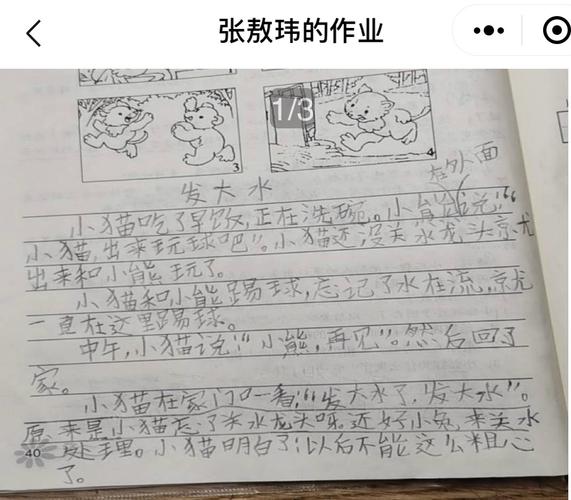 张敖玮的作业
1/3
3
4
发大水
在外面
小猫吃了早饭,正在洗碗。小熊说:“
小猫,出来玩球吧”。小猫还没关水龙头就
出来和小熊玩了。
小猫和小熊踢球,忘记了水在流,就
一直在这里踢球。
中午,小猫说:“小熊,再见”。然后回了
家。
小猫在家门口一看:“发大水了,发大水”。
原来是小猫忘了关水龙头呀。还好小兔,来关水
处理。小猫明白了:以后不能这么粗心
了。
40